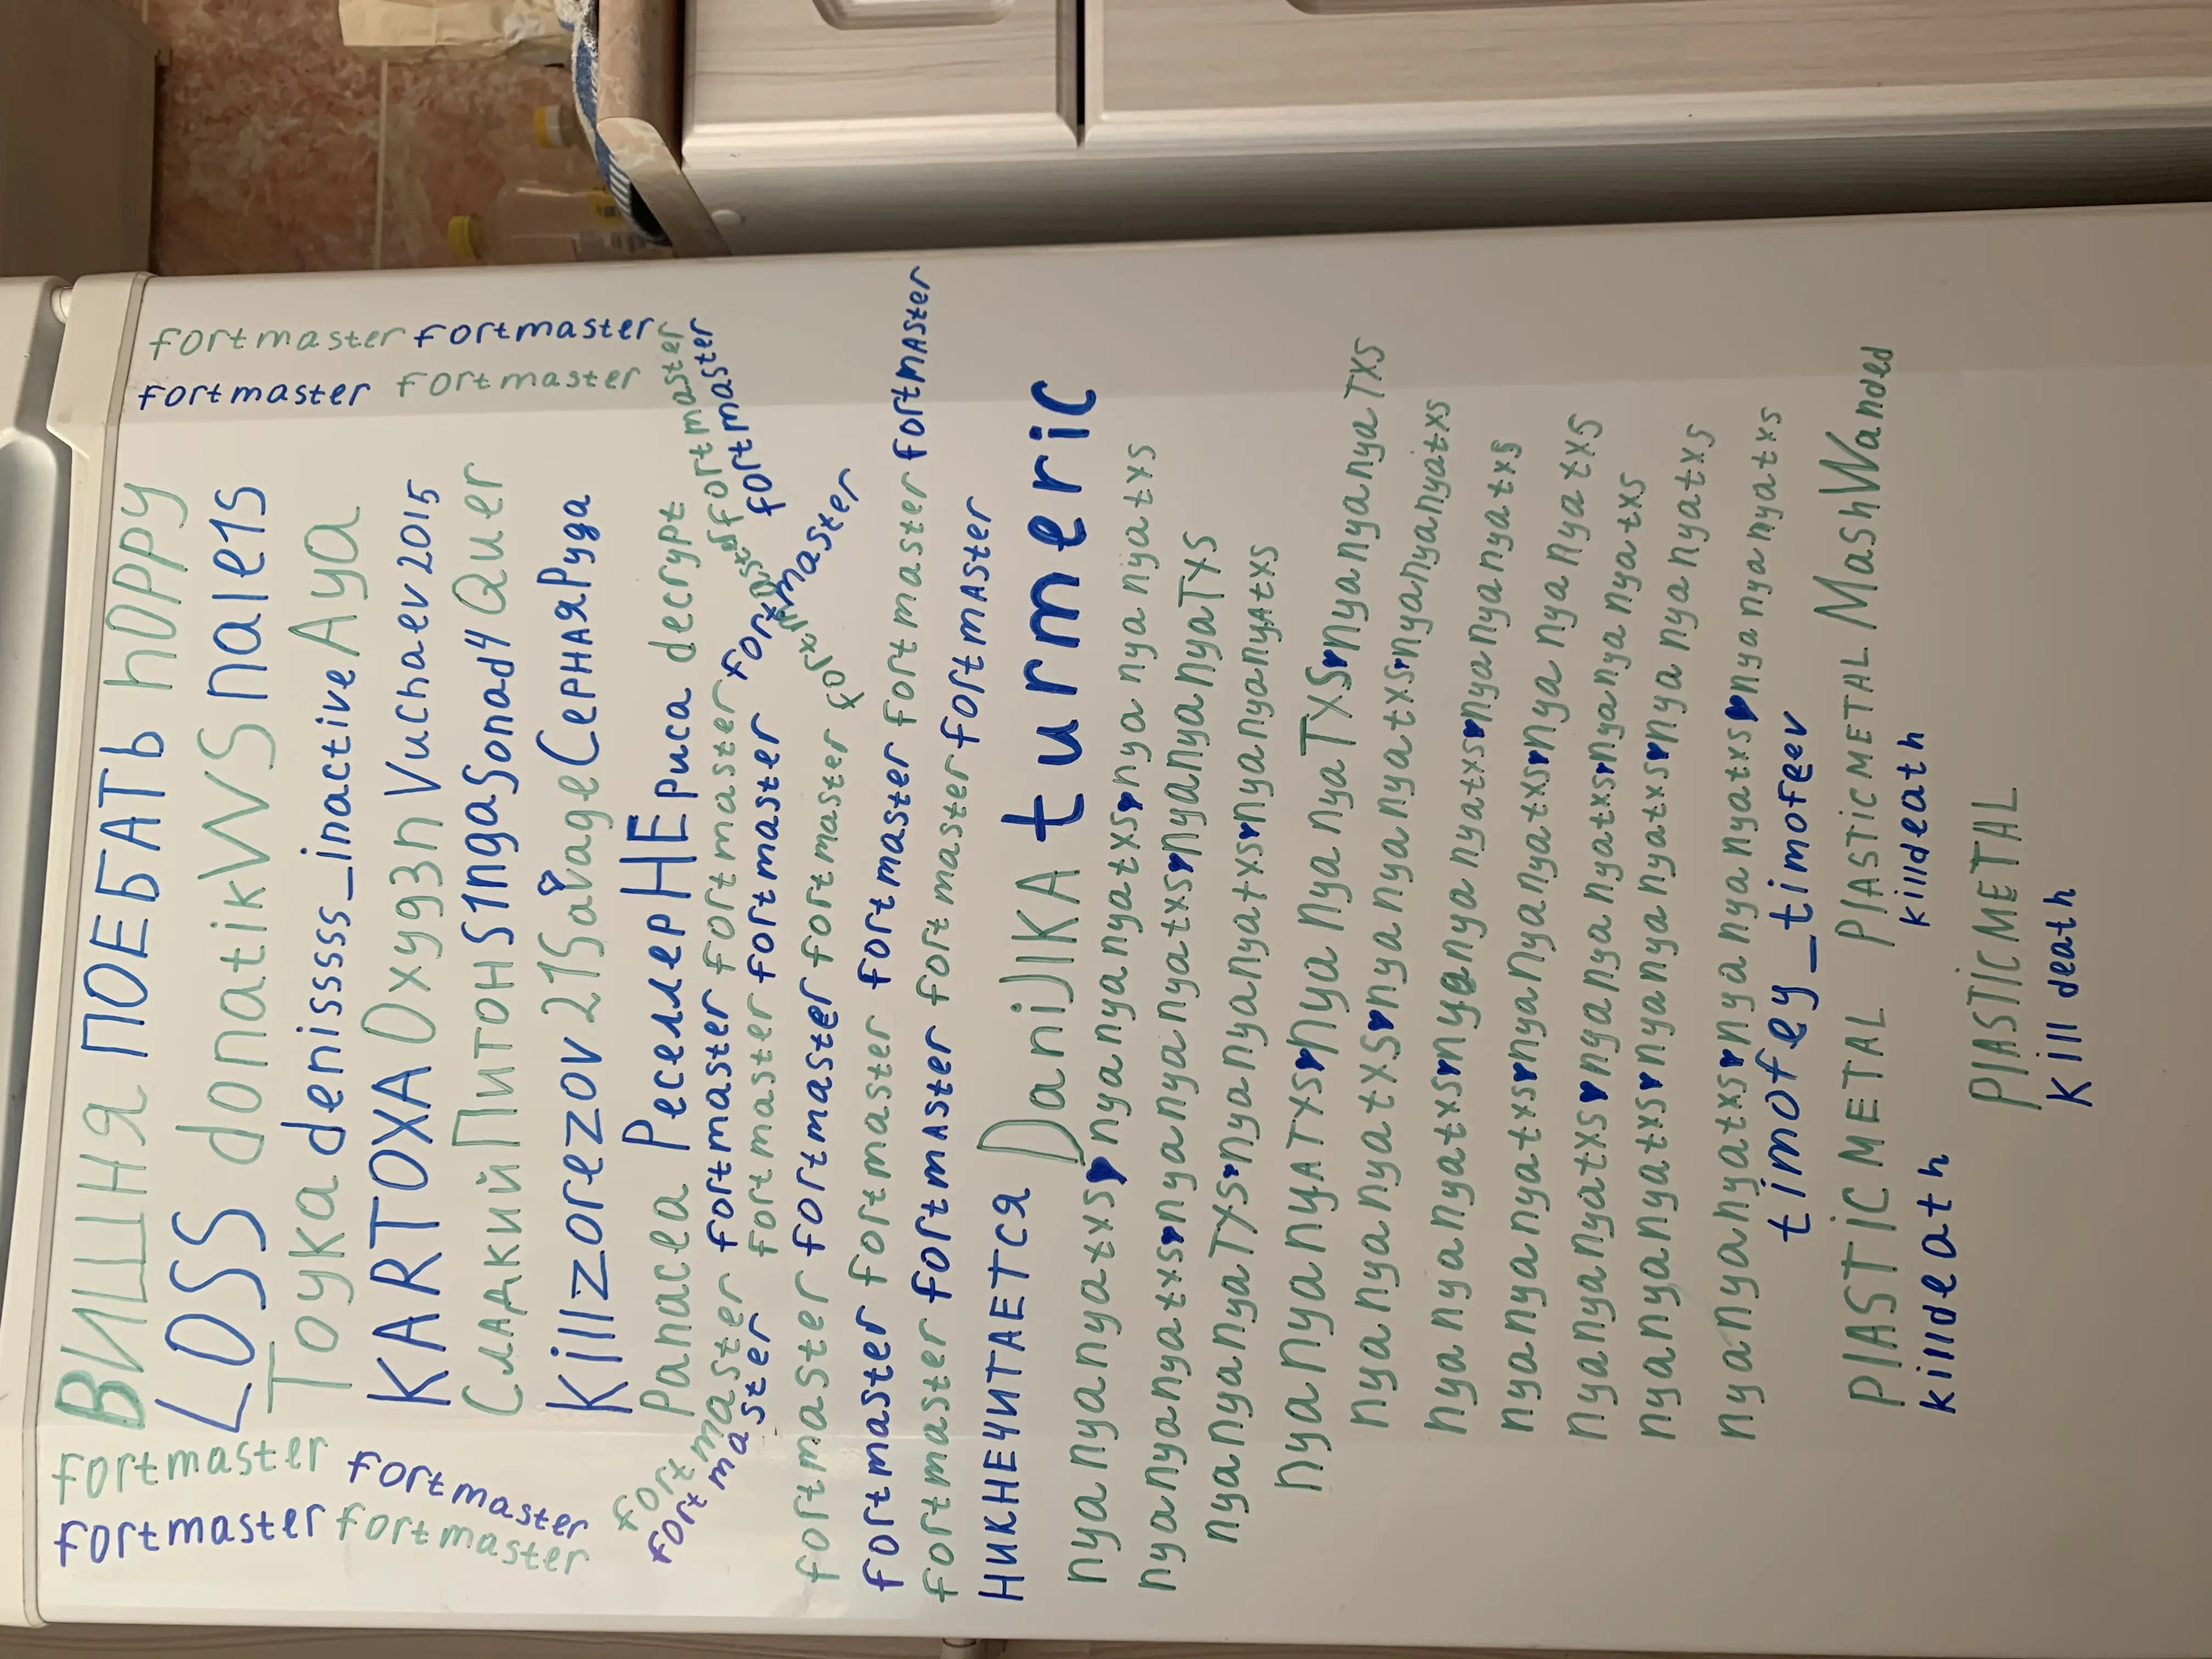 fortmaster fortmaster
fortmaster fortmaster
ВИШНЯ ПОЕБАТЬ hOPPy
LOSS donatikWS nale1s
Тоука denissss_inactive Aya
KARTOXA Oxyg3n Vuchaev2015
Сладкий Питон S1ngaSonad4 Quer
Killzorezov 21Savage СернаяРуда
Panacea РеселлерНЕриса decrypt
fortmaster fortmaster fortmaster fortmaster fortmaster
fortmaster fortmaster fortmaster fortmaster fortmaster
fortmaster fortmaster fortmaster fortmaster
fortmaster fortmaster fortmaster fortmaster fortmaster
fortmaster fortmaster fortmaster fortmaster
НИКНЕЧИТАЕТСЯ DaniJIKA turmeric
nyanyanyatxs♥nyanyanyatxs♥nyanyanyatxs
nyanyanyatxs♥nyanyanyatxs♥nyanyanyaTXS
nyanyanyaTXS♥nyanyanyatxs♥nyanyanyatxs
nyanyanyATXS♥nyanyanyaTXS♥nyanyanyaTXS
nyanyanyatxs♥nyanyanyatxs♥nyanyanyatxs
nyanyanyatxs♥nyanyanyatxs♥nyanyanyatxs
nyanyanyatxs♥nyanyanyatxs♥nyanyanyatxs
nyanyanyatxs♥nyanyanyatxs♥nyanyanyatxs
nyanyanyatxs♥nyanyanyatxs♥nyanyanyatxs
nyanyanyatxs♥nyanyanyatxs♥nyanyanyatxs
timofey_timofeev
PlASTiC METAL PlASTiCMETAL MashWanded
killdeath killdeath
PlASTiCMETAL
Kill death
fortmaster fortmaster
fortmaster fortmaster